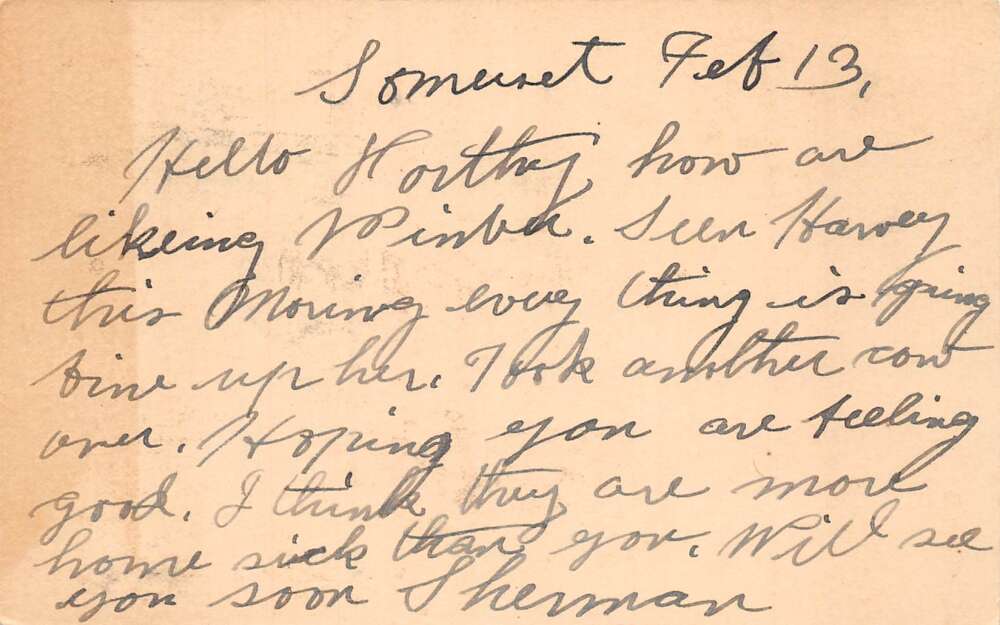 Somerset Feb 13,
Hello Horthy how are
likeing Winber. Seen Harvey
this Moring every thing is going
fine up her. Took another cow
over. Hoping you are feeling
good. I think they are more
home sick than you. Will see
you soon Sherman